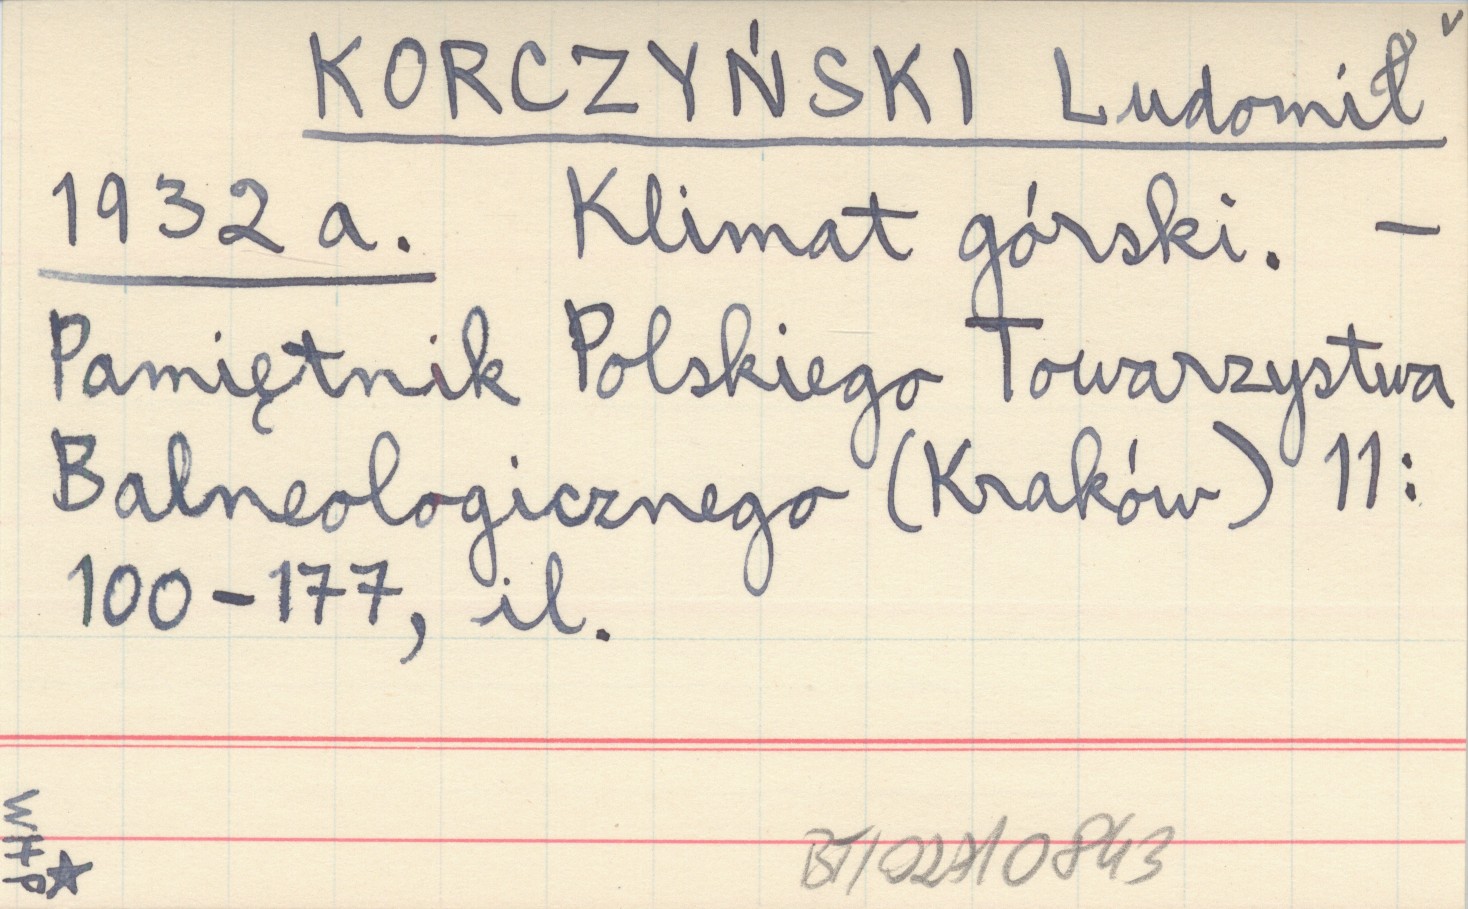 KORCZYŃSKI Ludomił
1932 a. Klimat górski. –
Pamiętnik Polskiego Towarzystwa
Balneologicznego (Kraków) 11:
100–177, il.